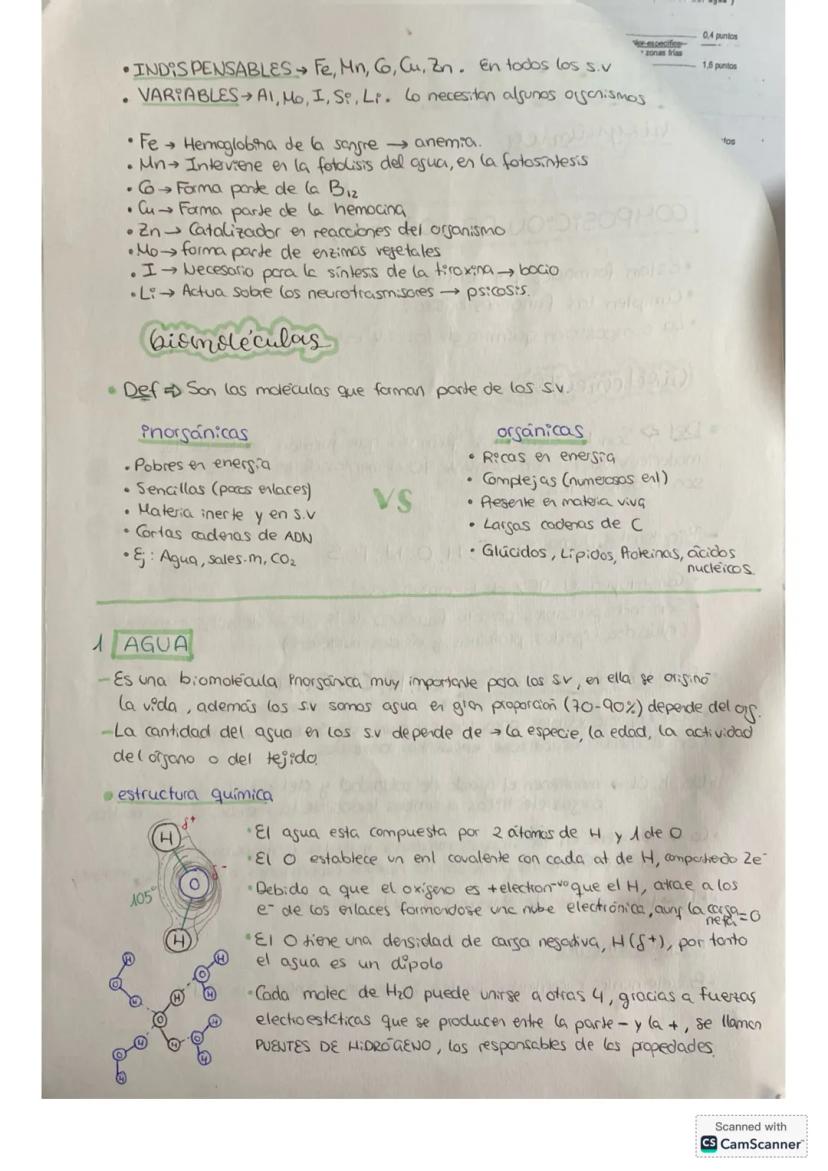 0,4 puntos
zonas frías
1,6 puntos
• INDISPENSABLES → Fe, Mn, Co, Cu, Zn. En todos los s.v
• VARIABLES → Al, Mo, I, Si, Li. Lo necesitan algunos organismos
tos
• Fe → Hemoglobina de la sangre → anemia.
• Mn → Interviene en la fotolisis del agua, en la fotosíntesis
• Co → Forma parte de la B₁₂
• Cu → Forma parte de la hemocina
• Zn → Catalizador en reacciones del organismo
• Mo → forma parte de enzimas vegetales
• I → Necesario para la síntesis de la tiroxina → bocio
• Li → Actua sobre los neurotrasmisores → psicosis.
biomoléculas
• Def ⇒ Son las moléculas que forman parte de los s.v.
inorgánicas
• Pobres en energía
• Sencillas (pocos enlaces)
• Materia inerte y en s.v
• Cortas cadenas de ADN
• Ej: Agua, sales.m, CO₂
VS
orgánicas
• Ricas en energía
• Complejas (numerosos enl)
• Presente en materia viva
• Largas cadenas de C
• Glúcidos, Lípidos, Proteinas, ácidos
nucleicos
1 AGUA
- Es una biomolécula inorgánica muy importante para los sv, en ella se originó
la vida, además los s.v somos agua en gran proporción (70-90%) depende del org.
- La cantidad del agua en los s.v depende de → la especie, la edad, la actividad
del órgano o del tejido
• estructura química
H δ+
O δ-
105°
H
• El agua esta compuesta por 2 átomos de H y 1 de O
• El O establece un enl covalente con cada at de H, compartiendo 2e⁻
• Debido a que el oxígeno es +electron⁻ᵛᵒ que el H, atrae a los
e⁻ de los enlaces formandose una nube electrónica, aunq la carga
neta = 0
• El O tiene una densidad de carga negativa, H (δ+), por tanto
el agua es un dipolo
• Cada molec de H₂O puede unirse a otras 4, gracias a fuerzas
electroestáticas que se producen entre la parte - y la +, se llaman
PUENTES DE HIDRÓGENO, los responsables de las propedades.
Scanned with
CS CamScanner